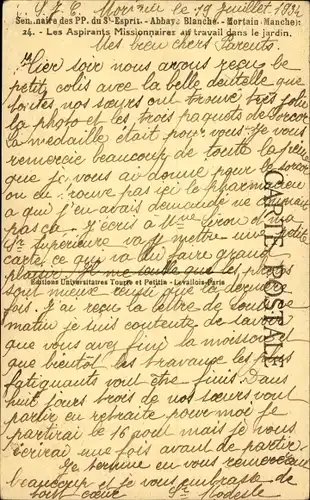 Mortain le 19 Juillet 1932
Séminaire des PP. du St-Esprit. - Abbaye Blanche. - Mortain (Manche):
24. - Les Aspirants Missionnaires au travail dans le jardin.
Mes bien chers Parents.
Hier soir nous avons reçu le
petit colis avec la belle dentelle que
toutes nos sœurs ont trouvé très jolie
la photo et les trois paquets de
la medaille était pour vous. Je vous
remercie beaucoup de toute la peine
que je vous ai donné pour le
on en trouve pas ici le pharmacien
a que j'en avais demandé ne
pas ça. J'écris a Mme et ma
Sr Supérieure va y mettre une petite
carte ce que va lui faire grand
plaisir. que les
Editions Universitaires Tourte et Petitin - Levallois-Paris
sont mieux que la dernière
fois. J'ai reçu la lettre de
matin je suis contente de savoir
que vous avez fini la moisson et
que bientôt les travaux les plus
fatiguants vont être finis. Dans
huit jours trois de nos sœurs vont
partir en retraite pour moi je
partirai le 16 août mais je vous
écrirai une fois avant de partir.
Je termine en vous remerciant
beaucoup et je vous embrasse de
tout cœur
CARTE POSTALE